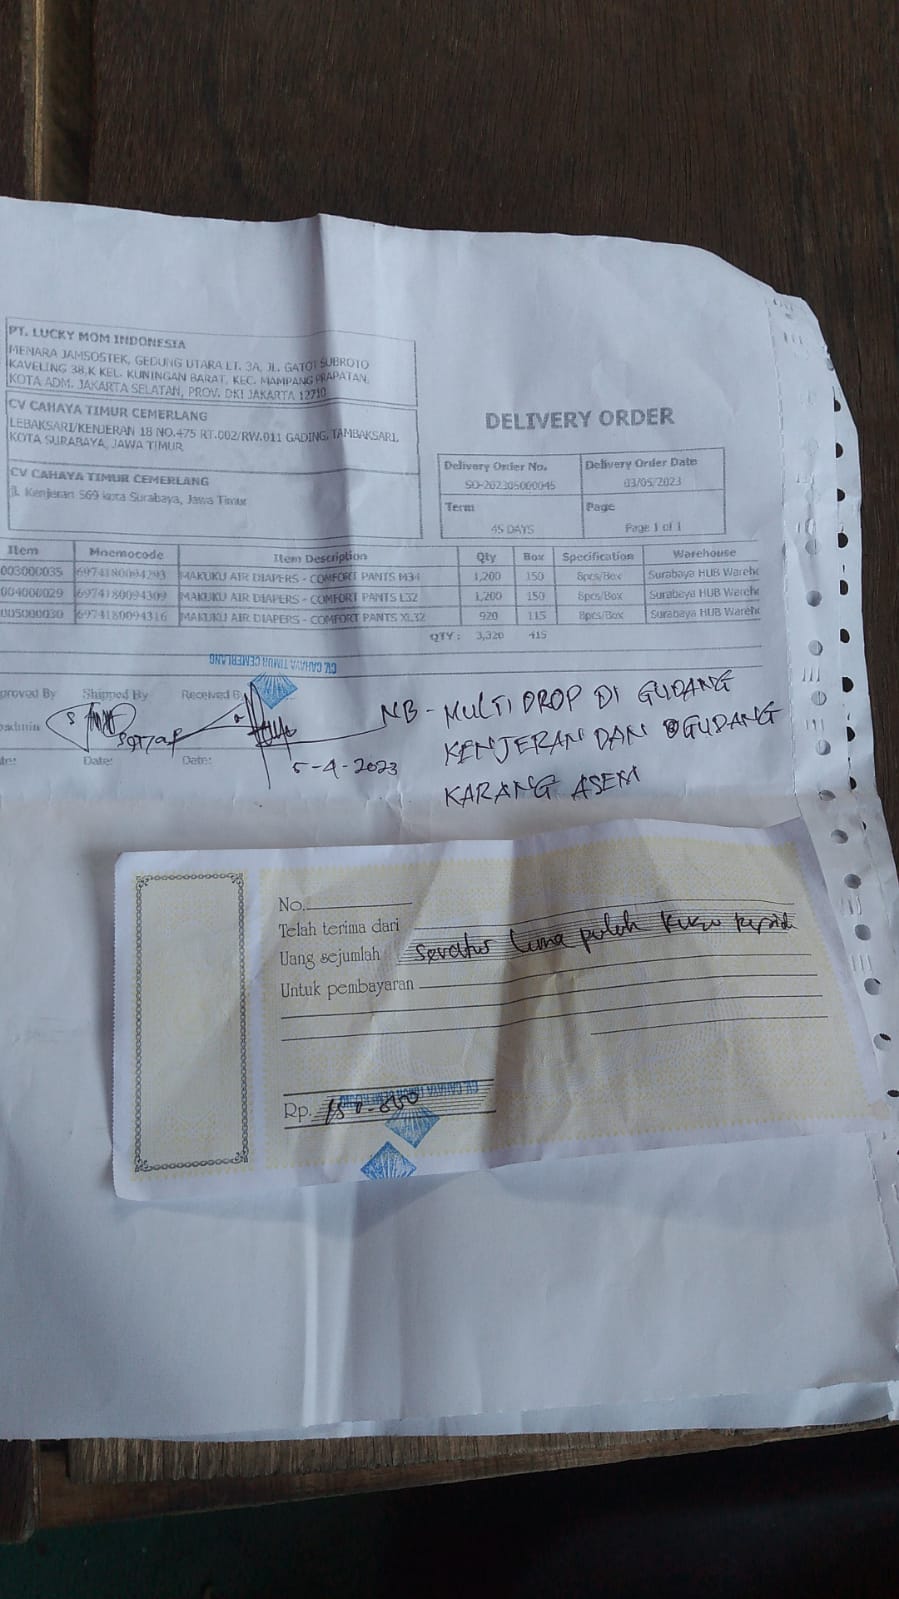 PT. LUCKY MOM INDONESIA
MENARA JAMSOSTEK, GEDUNG UTARA LT. 3A, JL. GATOT SUBROTO
KAVELING 38.K KEL. KUNINGAN BARAT, KEC. MAMPANG PRAPATAN,
KOTA ADM. JAKARTA SELATAN, PROV. DKI JAKARTA 12710
CV CAHAYA TIMUR CEMERLANG
LEBAKSARI/KENJERAN 18 NO.475 RT.002/RW.011 GADING, TAMBAKSARI,
KOTA SURABAYA, JAWA TIMUR
CV CAHAYA TIMUR CEMERLANG
Jl. Kenjeran 569 kota Surabaya, Jawa Timur
DELIVERY ORDER
Delivery Order No. Delivery Order Date
SO-202305000045 03/05/2023
Term Page
45 DAYS Page 1 of 1
Item Mnemocode Item Description Qty Box Specification Warehouse
003000035 6974180094293 MAKUKU AIR DIAPERS - COMFORT PANTS M34 1,200 150 8pcs/Box Surabaya HUB Wareho
004000029 6974180094309 MAKUKU AIR DIAPERS - COMFORT PANTS L32 1,200 150 8pcs/Box Surabaya HUB Wareho
005000030 6974180094316 MAKUKU AIR DIAPERS - COMFORT PANTS XL32 920 115 8pcs/Box Surabaya HUB Wareho
QTY : 3,320 415
CV. CAHAYA TIMUR CEMERLANG
proved By Shipped By Received B
Date: Date:
5-4-2023
NB - MULTI DROP DI GUDANG
KENJERAN DAN GUDANG
KARANG ASEM
No.
Telah terima dari
Uang sejumlah seratus lima puluh ribu rupiah
Untuk pembayaran
CV. CAHAYA TIMUR CEMERLANG
Rp. 150.000